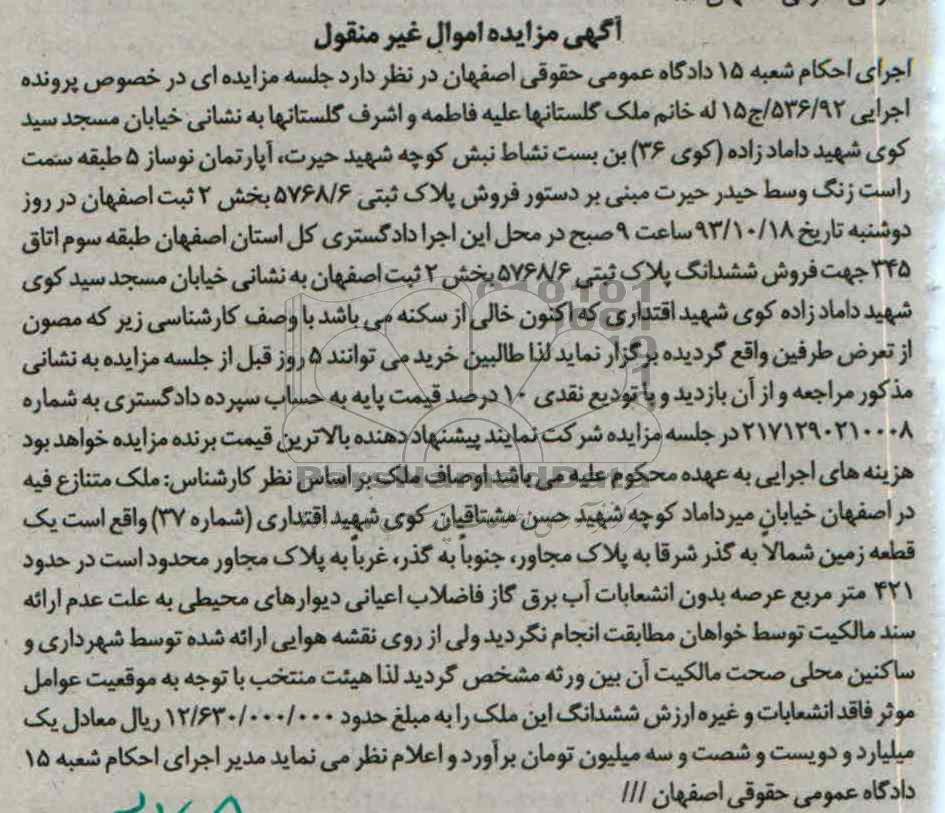 آگهی مزایده اموال غیر منقول
اجرای احکام شعبه ۱۵ دادگاه عمومی حقوقی اصفهان در نظر دارد جلسه مزایده ای در خصوص پرونده
اجرایی ۵۳۶/۹۲/ج۱۵ له خانم ملک گلستانها علیه فاطمه و اشرف گلستانها به نشانی خیابان مسجد سید
کوی شهید داماد زاده (کوی ۳۶) بن بست نشاط نبش کوچه شهید حیرت، آپارتمان نوساز ۵ طبقه سمت
راست زنگ وسط حیدر حیرت مبنی بر دستور فروش پلاک ثبتی ۵۷۶۸/۶ بخش ۲ ثبت اصفهان در روز
دوشنبه تاریخ ۹۳/۱۰/۱۸ ساعت ۹ صبح در محل این اجرا دادگستری کل استان اصفهان طبقه سوم اتاق
۳۴۵ جهت فروش ششدانگ پلاک ثبتی ۵۷۶۸/۶ بخش ۲ ثبت اصفهان به نشانی خیابان مسجد سید کوی
شهید داماد زاده کوی شهید اقتداری که اکنون خالی از سکنه می باشد با وصف کارشناسی زیر که مصون
از تعرض طرفین واقع گردیده برگزار نماید لذا طالبین خرید می توانند ۵ روز قبل از جلسه مزایده به نشانی
مذکور مراجعه و از آن بازدید و با تودیع نقدی ۱۰ درصد قیمت پایه به حساب سپرده دادگستری به شماره
۲۱۷۱۲۹۰۲۱۰۰۰۸ در جلسه مزایده شرکت نمایند پیشنهاد دهنده بالاترین قیمت برنده مزایده خواهد بود
هزینه های اجرایی به عهده محکوم علیه می باشد اوصاف ملک بر اساس نظر کارشناس: ملک متنازع فیه
در اصفهان خیابان میرداماد کوچه شهید حسن مشتاقیان کوی شهید اقتداری (شماره ۳۷) واقع است یک
قطعه زمین شمالاً به گذر شرقا به پلاک مجاور، جنوباً به گذر، غرباً به پلاک مجاور محدود است در حدود
۴۲۱ متر مربع عرصه بدون انشعابات آب برق گاز فاضلاب اعیانی دیوارهای محیطی به علت عدم ارائه
سند مالکیت توسط خواهان مطابقت انجام نگردید ولی از روی نقشه هوایی ارائه شده توسط شهرداری و
ساکنین محلی صحت مالکیت آن بین ورثه مشخص گردید لذا هیئت منتخب با توجه به موقعیت عوامل
موثر فاقد انشعابات و غیره ارزش ششدانگ این ملک را به مبلغ حدود ۱۲/۶۳۰/۰۰۰/۰۰۰ ریال معادل یک
میلیارد و دویست و شصت و سه میلیون تومان برآورد و اعلام نظر می نماید مدیر اجرای احکام شعبه ۱۵
دادگاه عمومی حقوقی اصفهان ///